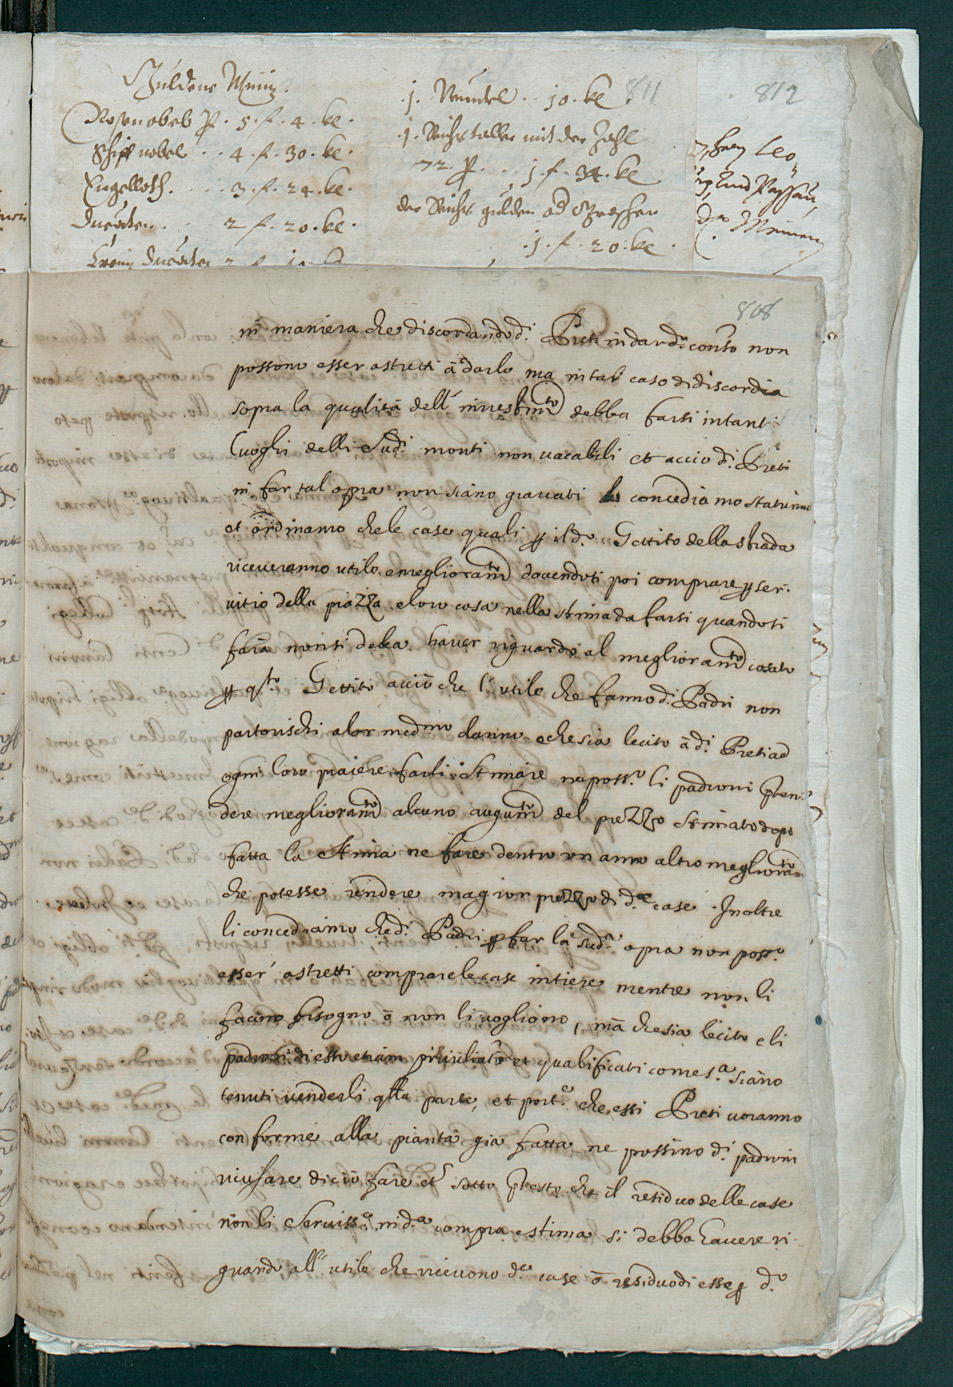 Guldene Müntz.
Rosenobel p. 5. f. 4. kr.
Schiffnobel . . 4. f. 30. kr.
Engelloth. . . . 3. f. 24. kr.
Ducaten. . . 2 f. 20. kr.
Ducaten 2 f.
.j. . . 10. kr
.j. Reichstaller mit der Zahl
72. p. . . j. f. 34. kr
der Reichs gulden od Groschen
. j. f. 20. kr.
811
812
Leo
und Passau
808
in maniera che discordando d.i Preti in dar d.o conto non
possono esser astretti à darlo ma in tal caso di discordia
sopra la qualità dell' investim.to debba farsi in tanti
luoghi delli Sud.i monti non vacabili et acciò d.i Preti
in far tal opra non siano gravati li concediamo statuimo
et ordinamo che le case quali p il d.o Gettito della strada
riceveranno utile e meglioram.to dovendosi poi comprare p ser-
vitio della piazza e loro casa nella stima da farsi quando si
farà non si debba haver riguardo al meglioram.to causato
p q.to Gettito acciò che l' utile che fanno d.i Padri non
partorischi a lor med.mo danno e che sia lecito à d.i Preti ad
ogni loro piacere farli stimare ne poss.o li padroni preten-
dere meglioram.to alcuno augum.to del prezzo stimato dopo
fatta la stima ne fare dentro un anno altro meglioram.to
che potesse rendere magior prezzo di d.e case. Inoltre
li concediamo che d.i Padri p far la sud.a opra non poss.o
esser astretti comprare le case intiere mentre non li
facino bisogno ò non li vogliono, mà che sia lecito e li
padroni di esse etiam privilegiati et qualificati come s.a siano
tenuti venderli q.lla parte, et port.e che essi Preti voranno
conforme alla pianta già fatta ne possino d.i padroni
ricusare di ciò fare et sotto p.testo che il residuo delle case
non li servisse in d.a compra e stima si debba havere ri-
guardo all' utile che ricevono d.e case ò residuo di esse p d.o